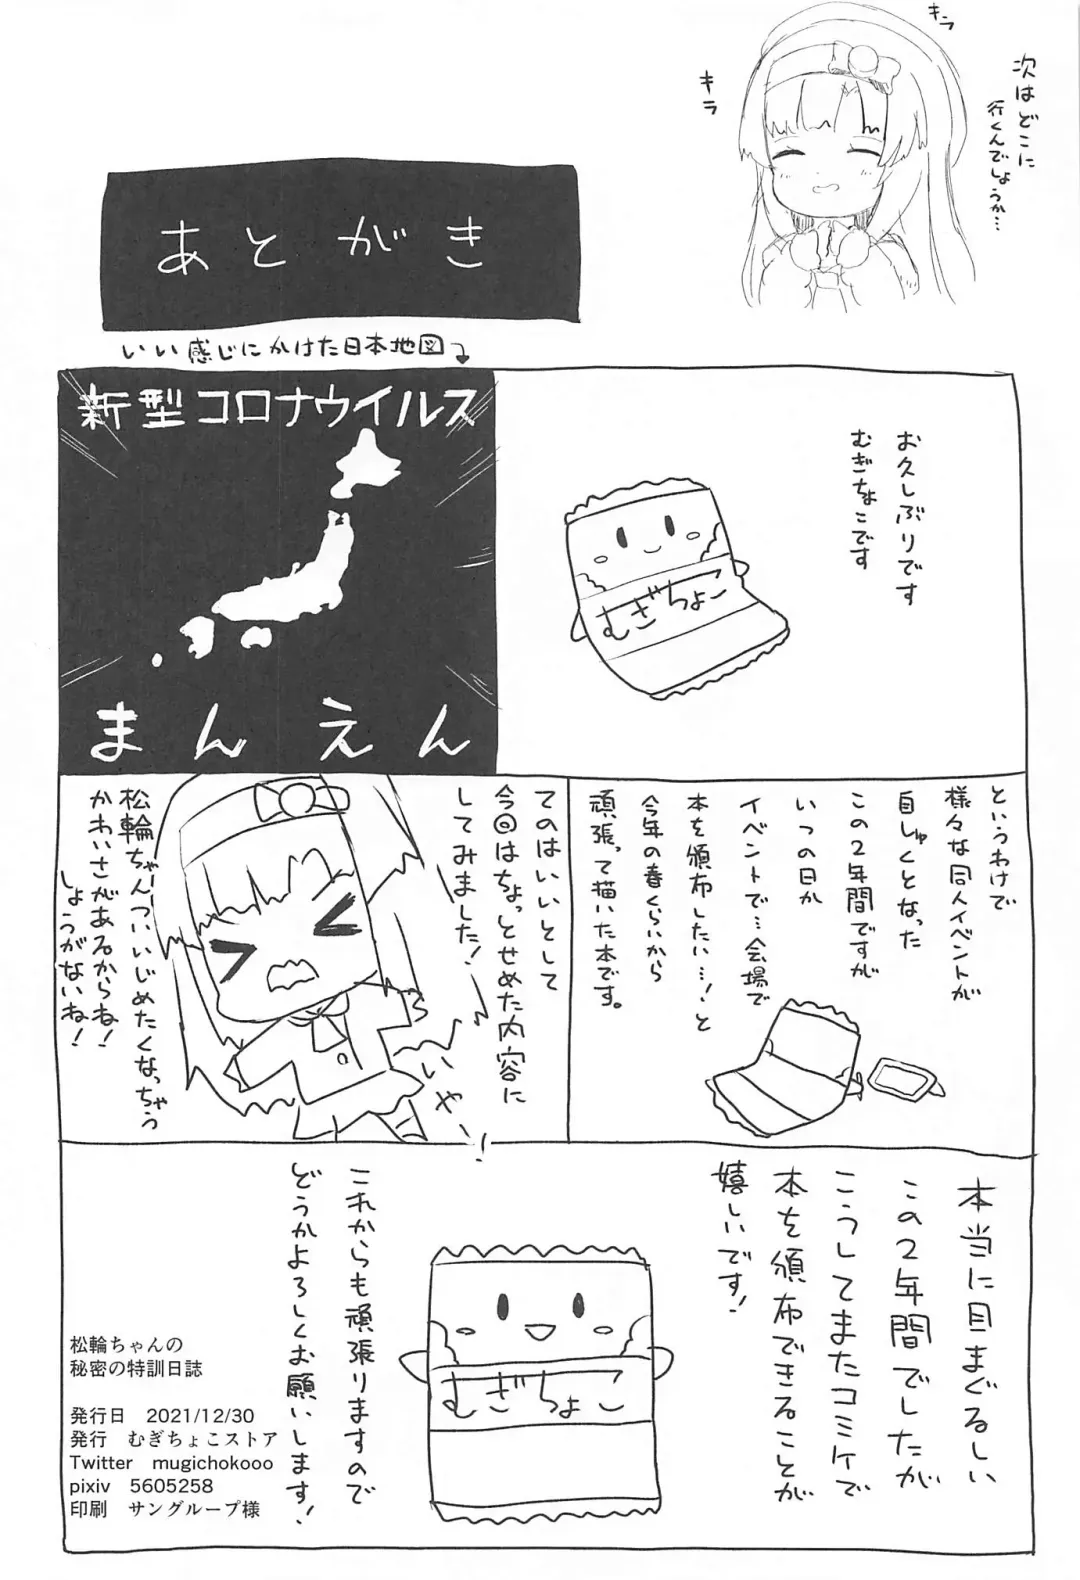 次はどこに
行くんでしょうか…
キラ
キラ
あとがき
いい感じにかけた日本地図
お久しぶりです
むぎちょこです
むぎちょこ
新型コロナウイルス
まんえん
というわけで
様々な同人イベントが
自しゅくとなった
この2年間ですが
いつの日か
イベントで…会場で
本を頒布したい…!と
今年の春くらいから
頑張って描いた本です。
てのはいいとして
今回はちょっとせめた内容に
してみました!
いやーっ!
松輪ちゃんついいじめたくなっちゃう
かわいさがあるからね!
しょうがないね!
本当に目まぐるしい
この2年間でしたが
こうしてまたコミケで
本を頒布できることが
嬉しいです!
むぎちょこ
これからも頑張りますので
どうかよろしくお願いします!
松輪ちゃんの
秘密の特訓日誌
発行日 2021/12/30
発行 むぎちょこストア
Twitter mugichokooo
pixiv 5605258
印刷 サングループ様